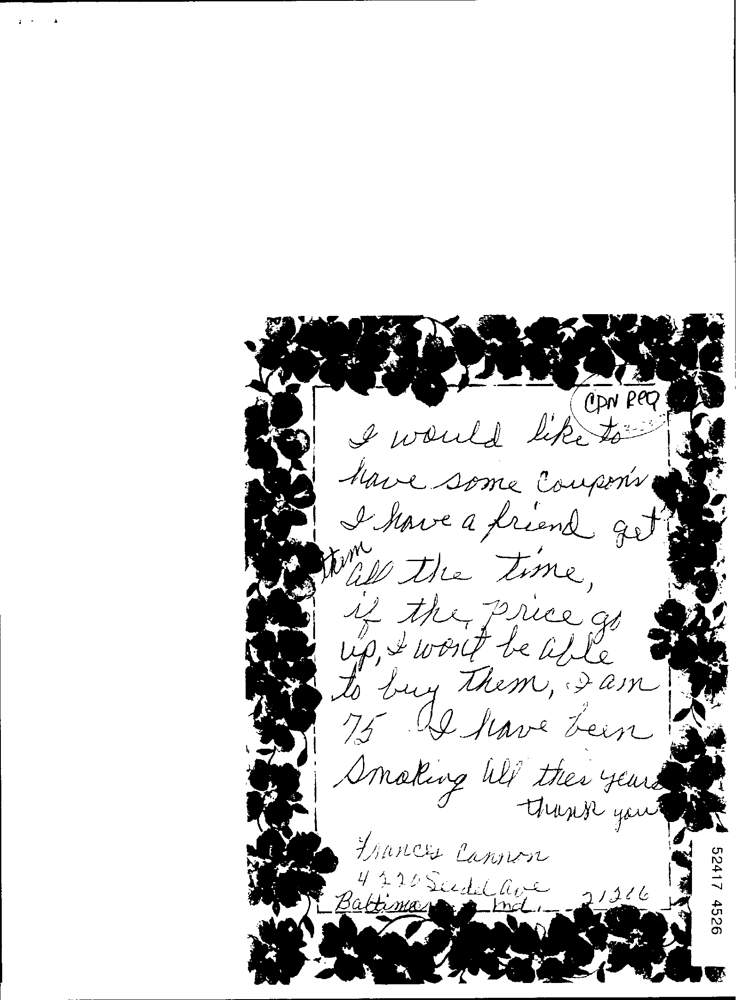 CPN REQ
I would like to
have some Coupon's
I have a friend get
them
all the time,
if the price go
up, I won't be able
to buy them, I am
75 I have been
Smoking all thes years
thank you
Frances Cannon
Seidel Ave
Baltimore Md.
52417 4526